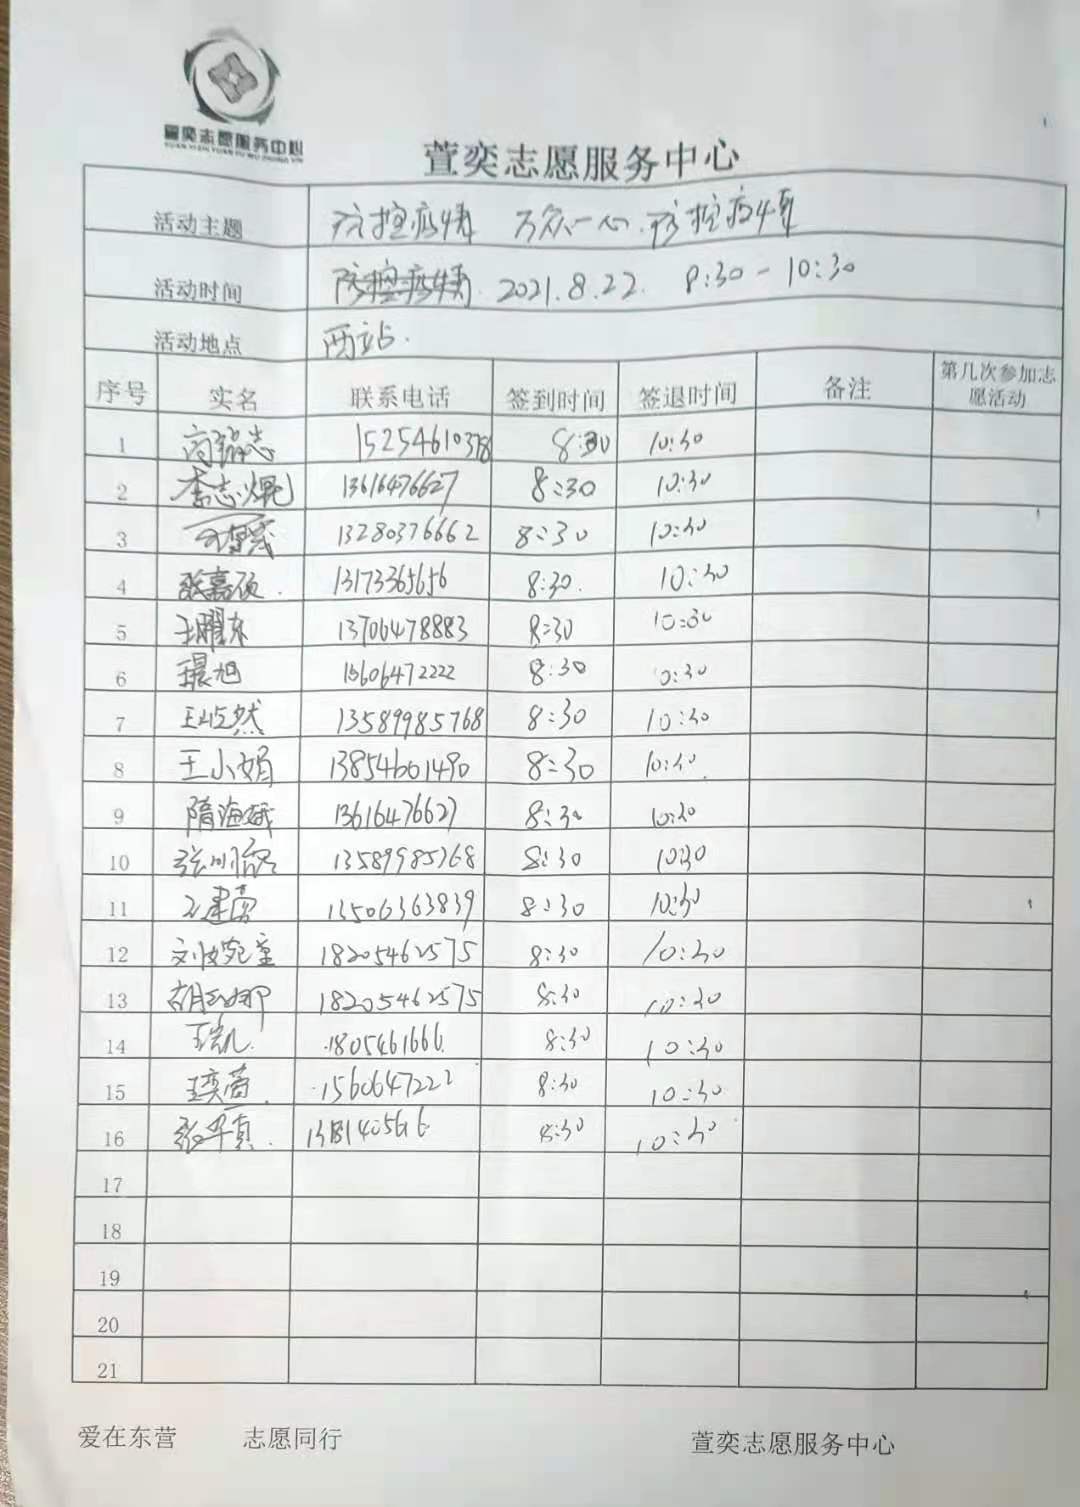 萱奕志愿服务中心
XUAN YI ZHI YUAN FU WU ZHONG XIN
萱奕志愿服务中心
活动主题 防控疫情 万众一心.防控疫情
活动时间 防控疫情. 2021.8.22. 8:30-10:30
活动地点 西站.
序号 实名 联系电话 签到时间 签退时间 备注 第几次参加志愿活动
1 15254610378 8:30 10:30
2 李志焜 13616476627 8:30 10:30
3 13280376662 8:30 10:30
4 张嘉硕. 13173365656 8:30. 10:30
5 王曜东 13706478883 8:30 10:30
6 王晨旭 15606472222 8:30 10:30
7 王屹然 13589985768 8:30 10:30
8 王小娟 13854601490 8:30 10:30
9 隋海娥 13616476627 8:30 10:30
10 13589985768 8:30 10:30
11 王建蕾 13506363839 8:30 10:30
12 刘宛童 18205462575 8:30 10:30
13 胡娜 18205462575 8:30 10:30
14 王凯. 1805461666. 8:30 10:30
15 王奕萱. 1560647222 8:30 10:30
16 8:30 10:30
17
18
19
20
21
爱在东营 志愿同行 萱奕志愿服务中心